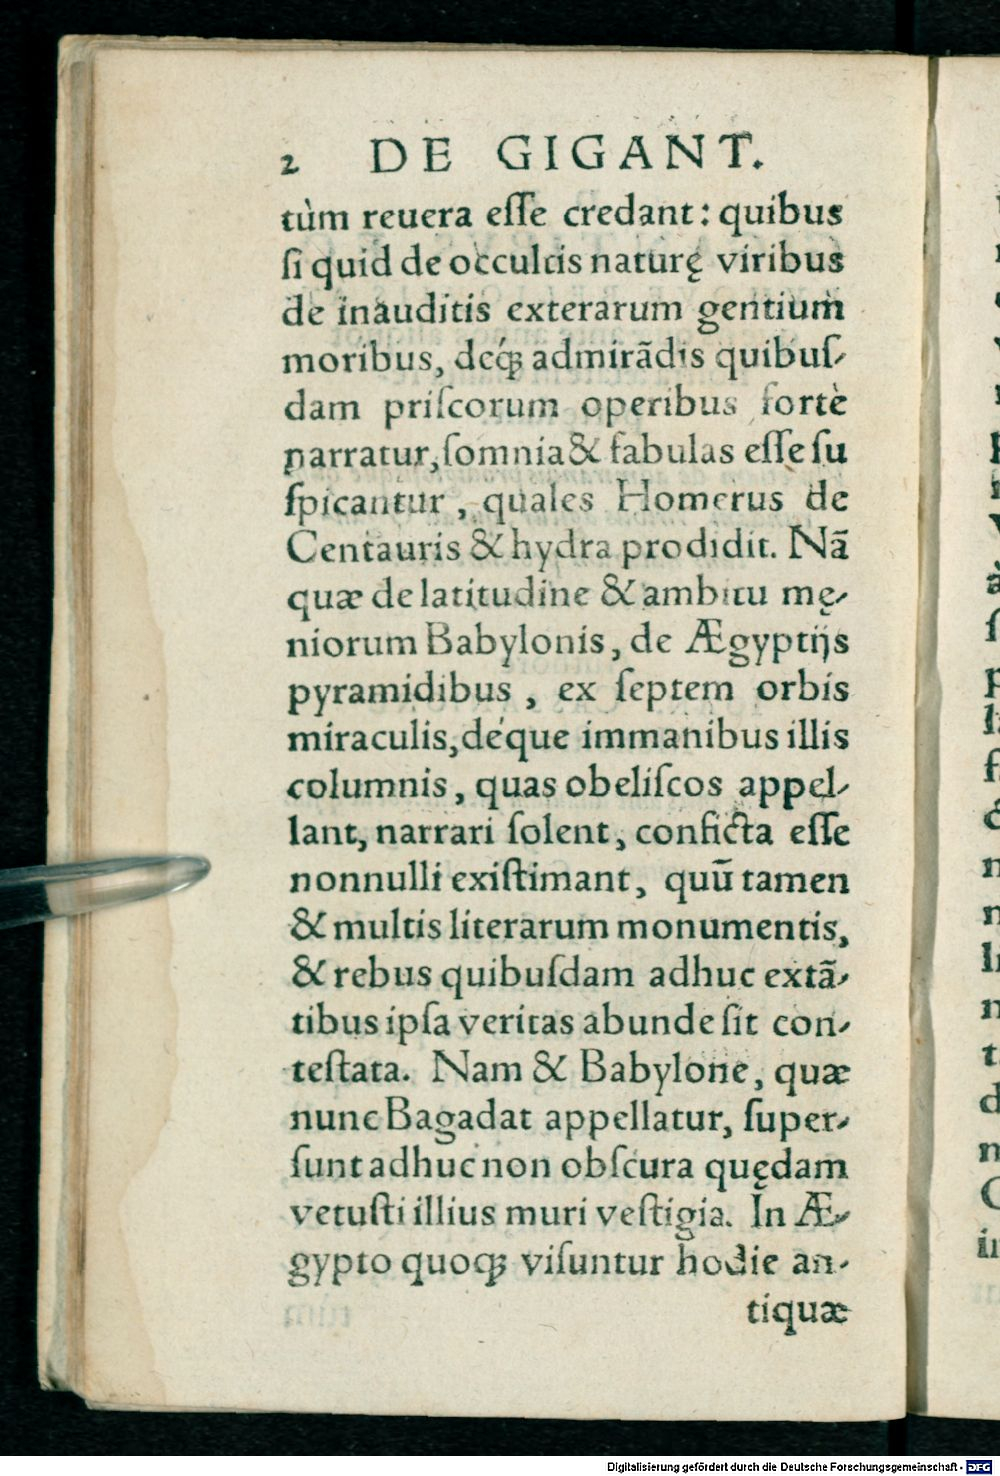 2 DE GIGANT.
tùm reuera eſſe credant: quibus
ſi quid de occultis naturę viribus
de inauditis exterarum gentium
moribus, deq́ꝫ admirãdis quibuſ-
dam priſcorum operibus fortè
narratur, ſomnia & fabulas eſſe ſu
ſpicantur, quales Homerus de
Centauris & hydra prodidit. Nã
quæ de latitudine & ambitu mę-
niorum Babylonis, de Ægyptijs
pyramidibus, ex ſeptem orbis
miraculis, déque immanibus illis
columnis, quas obeliſcos appel-
lant, narrari ſolent, conficta eſſe
nonnulli exiſtimant, quũ tamen
& multis literarum monumentis,
& rebus quibuſdam adhuc extã-
tibus ipſa veritas abunde ſit con-
teſtata. Nam & Babylone, quæ
nunc Bagadat appellatur, ſuper-
ſunt adhuc non obſcura quędam
vetuſti illius muri veſtigia. In Æ-
gypto quoqꝫ viſuntur hodie an-
tiquæ
Digitalisierung gefördert durch die Deutsche Forschungsgemeinschaft - DFG